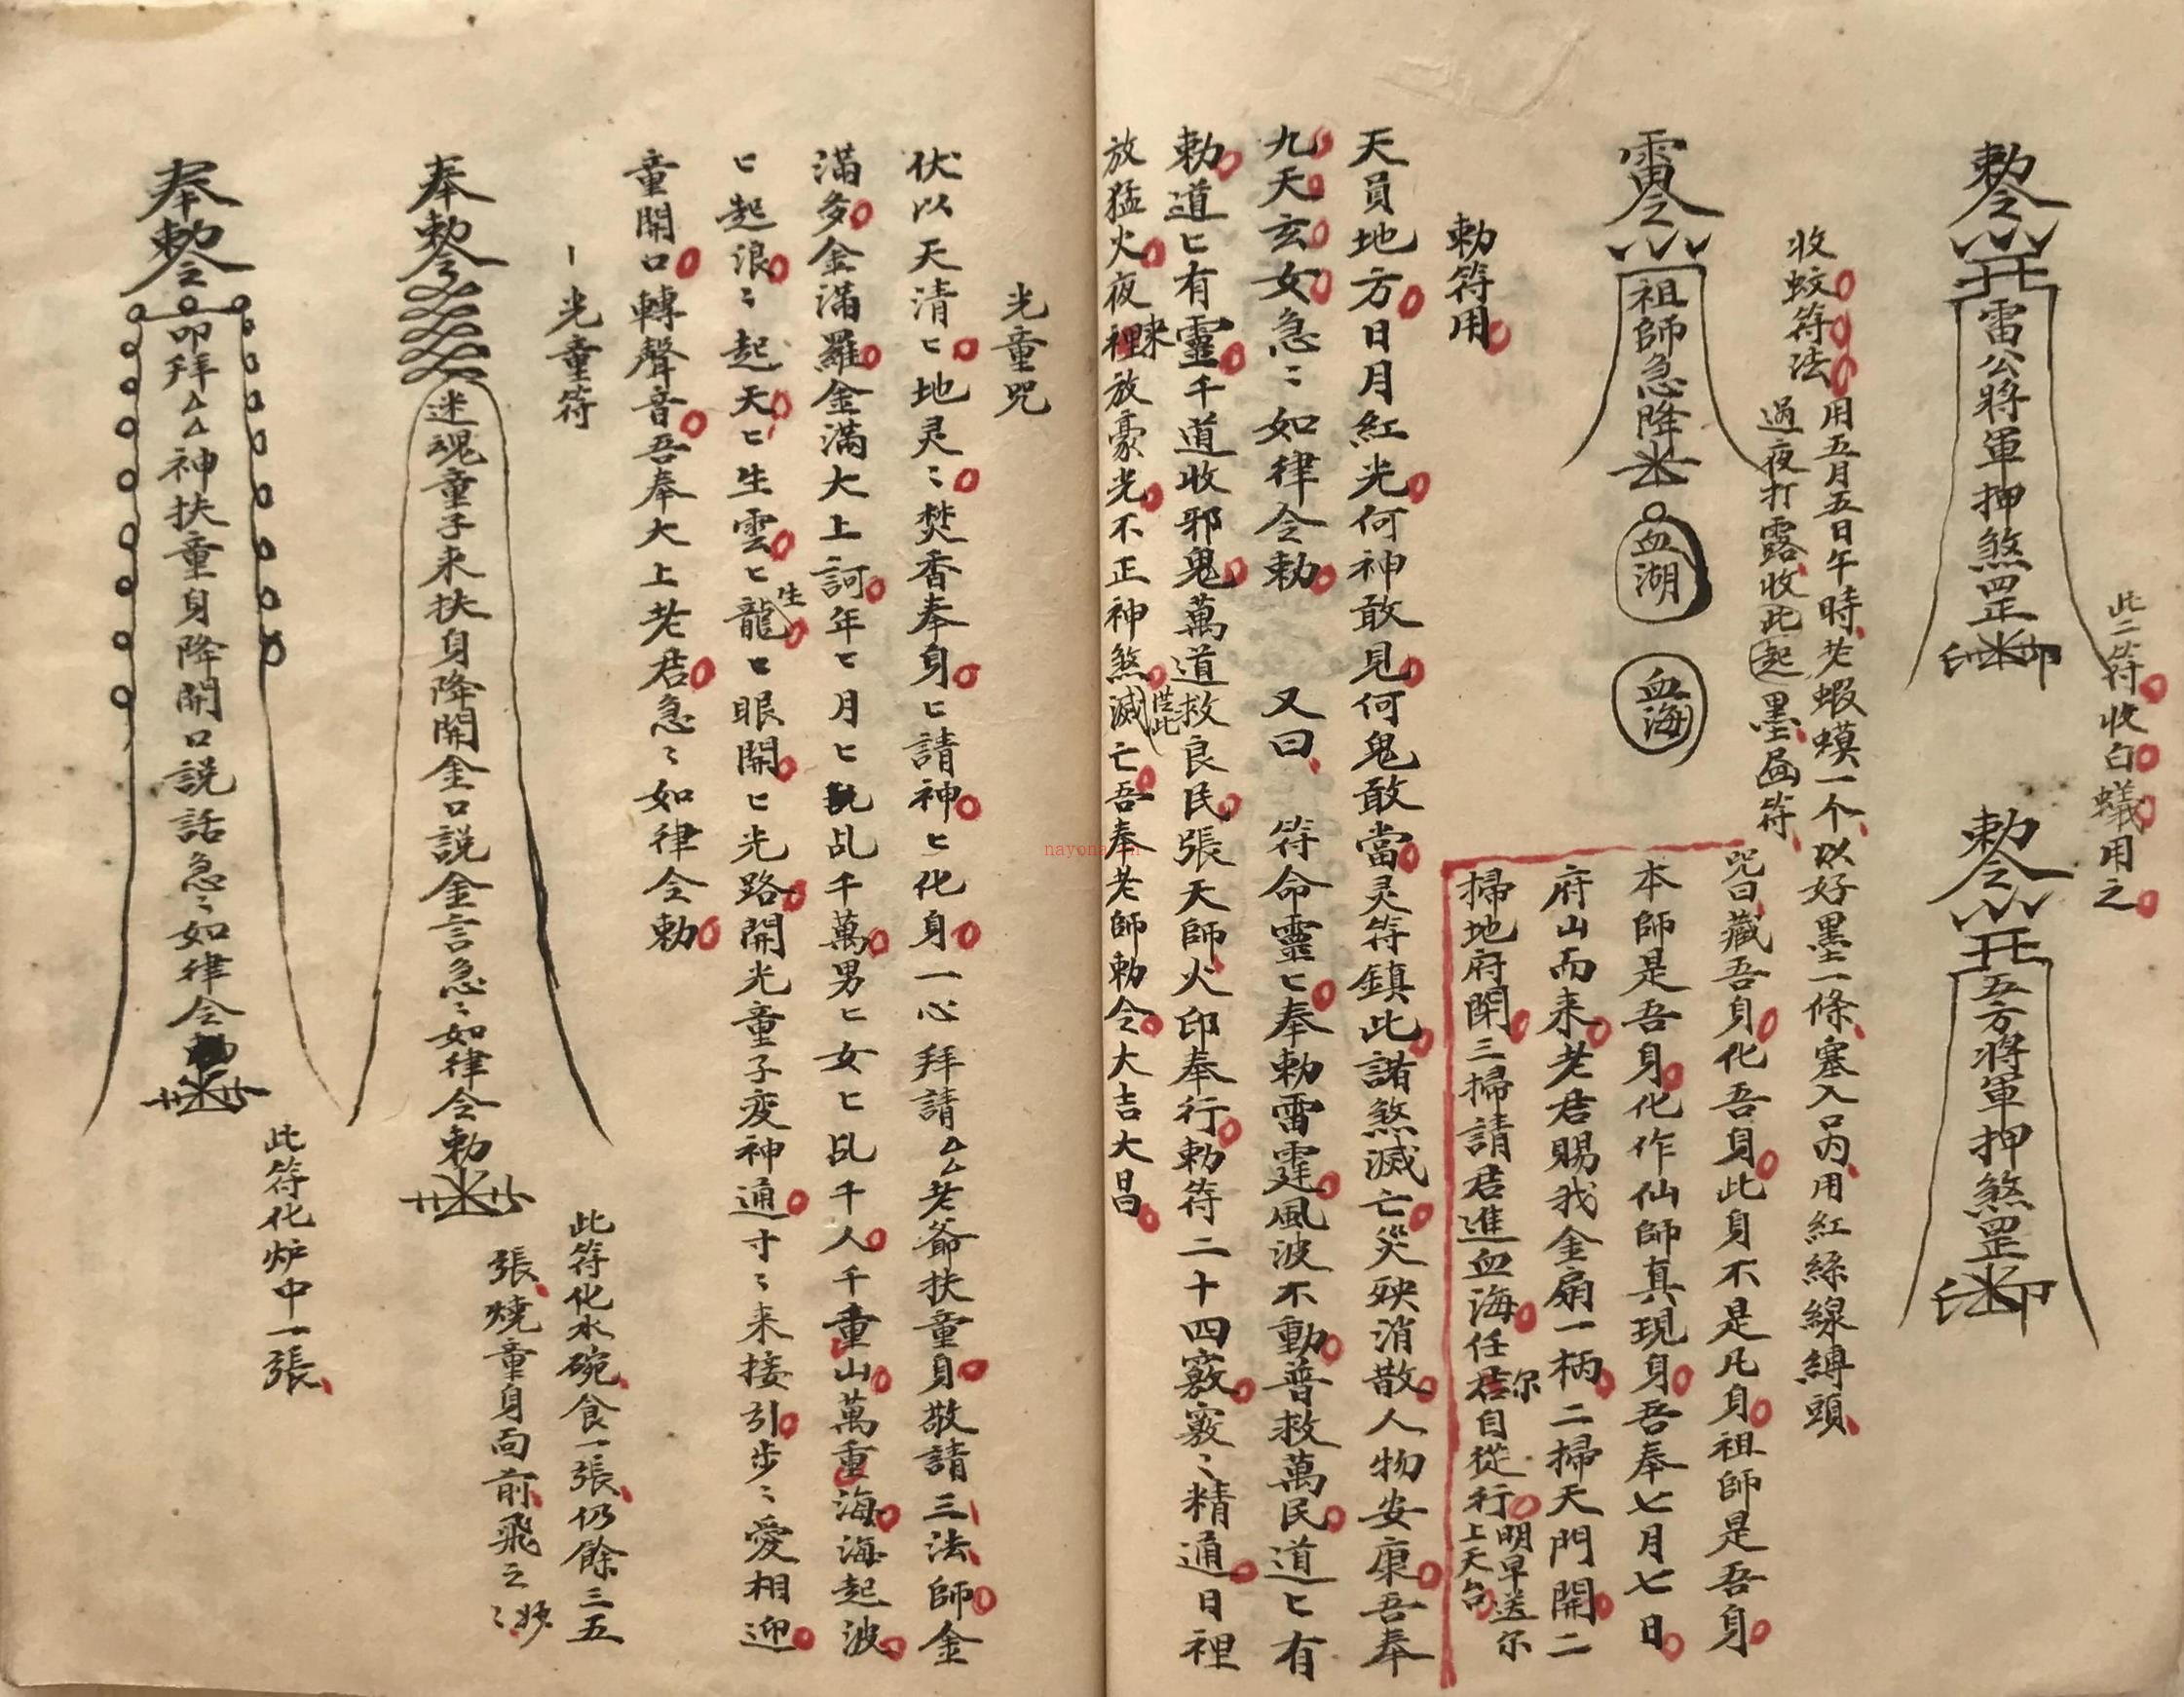 勅令
雷公將軍押煞罡
印
此二符收白蟻用之
勅令
五方將軍押煞罡
印
收蚊符法
用五月五日午時老蝦蟆一个以好墨一條塞入口內用紅絲線縛頭
過夜打露收此起墨画符
咒曰藏吾身化吾身此身不是凡身祖師是吾身
本師是吾身化作仙師真現身吾奉七月七日
府山而来老君賜我金扇一柄二掃天門開二
掃地府閉三掃請君進血海任君尔自從行明早送尔上天台
雷令
祖師急降
血湖
血海
勅符用
天員地方日月紅光何神敢見何鬼敢當灵符鎮此諸煞滅亡災殃消散人物安康吾奉
九天玄女急〻如律令勅 又曰 符命靈匕奉勅雷霆風波不動普救萬民道匕有
勅道匕有靈千道收邪鬼萬道救良民張天師火印奉行勅符二十四竅竅〻精通日裡
放猛火夜裡来放豪光不正神煞滅亡吾奉老師勅令大吉大昌
光童咒
伏以天清匕地灵〻焚香奉身匕請神匕化身一心拜請厶厶老爺扶童身敬請三法師金
滿多金滿羅金滿大上訶年匕月匕乱千萬男匕女匕乱千人千重山萬重海海起波
匕起浪〻起天匕生雲匕生龍匕眼開匕光路開光童子变神通寸〻来接引步〻愛相迎
童開口轉聲音吾奉大上老君急〻如律令勅
一光童符
奉勅令
迷魂童子来扶身降開金口説金言急〻如律令勅
此符化水碗食一張仍餘三五
張燒童身向前飛之妙〻
奉勅令
叩拜厶厶神扶童身降開口説話急〻如律令勅
此符化炉中一張
nayona.cn